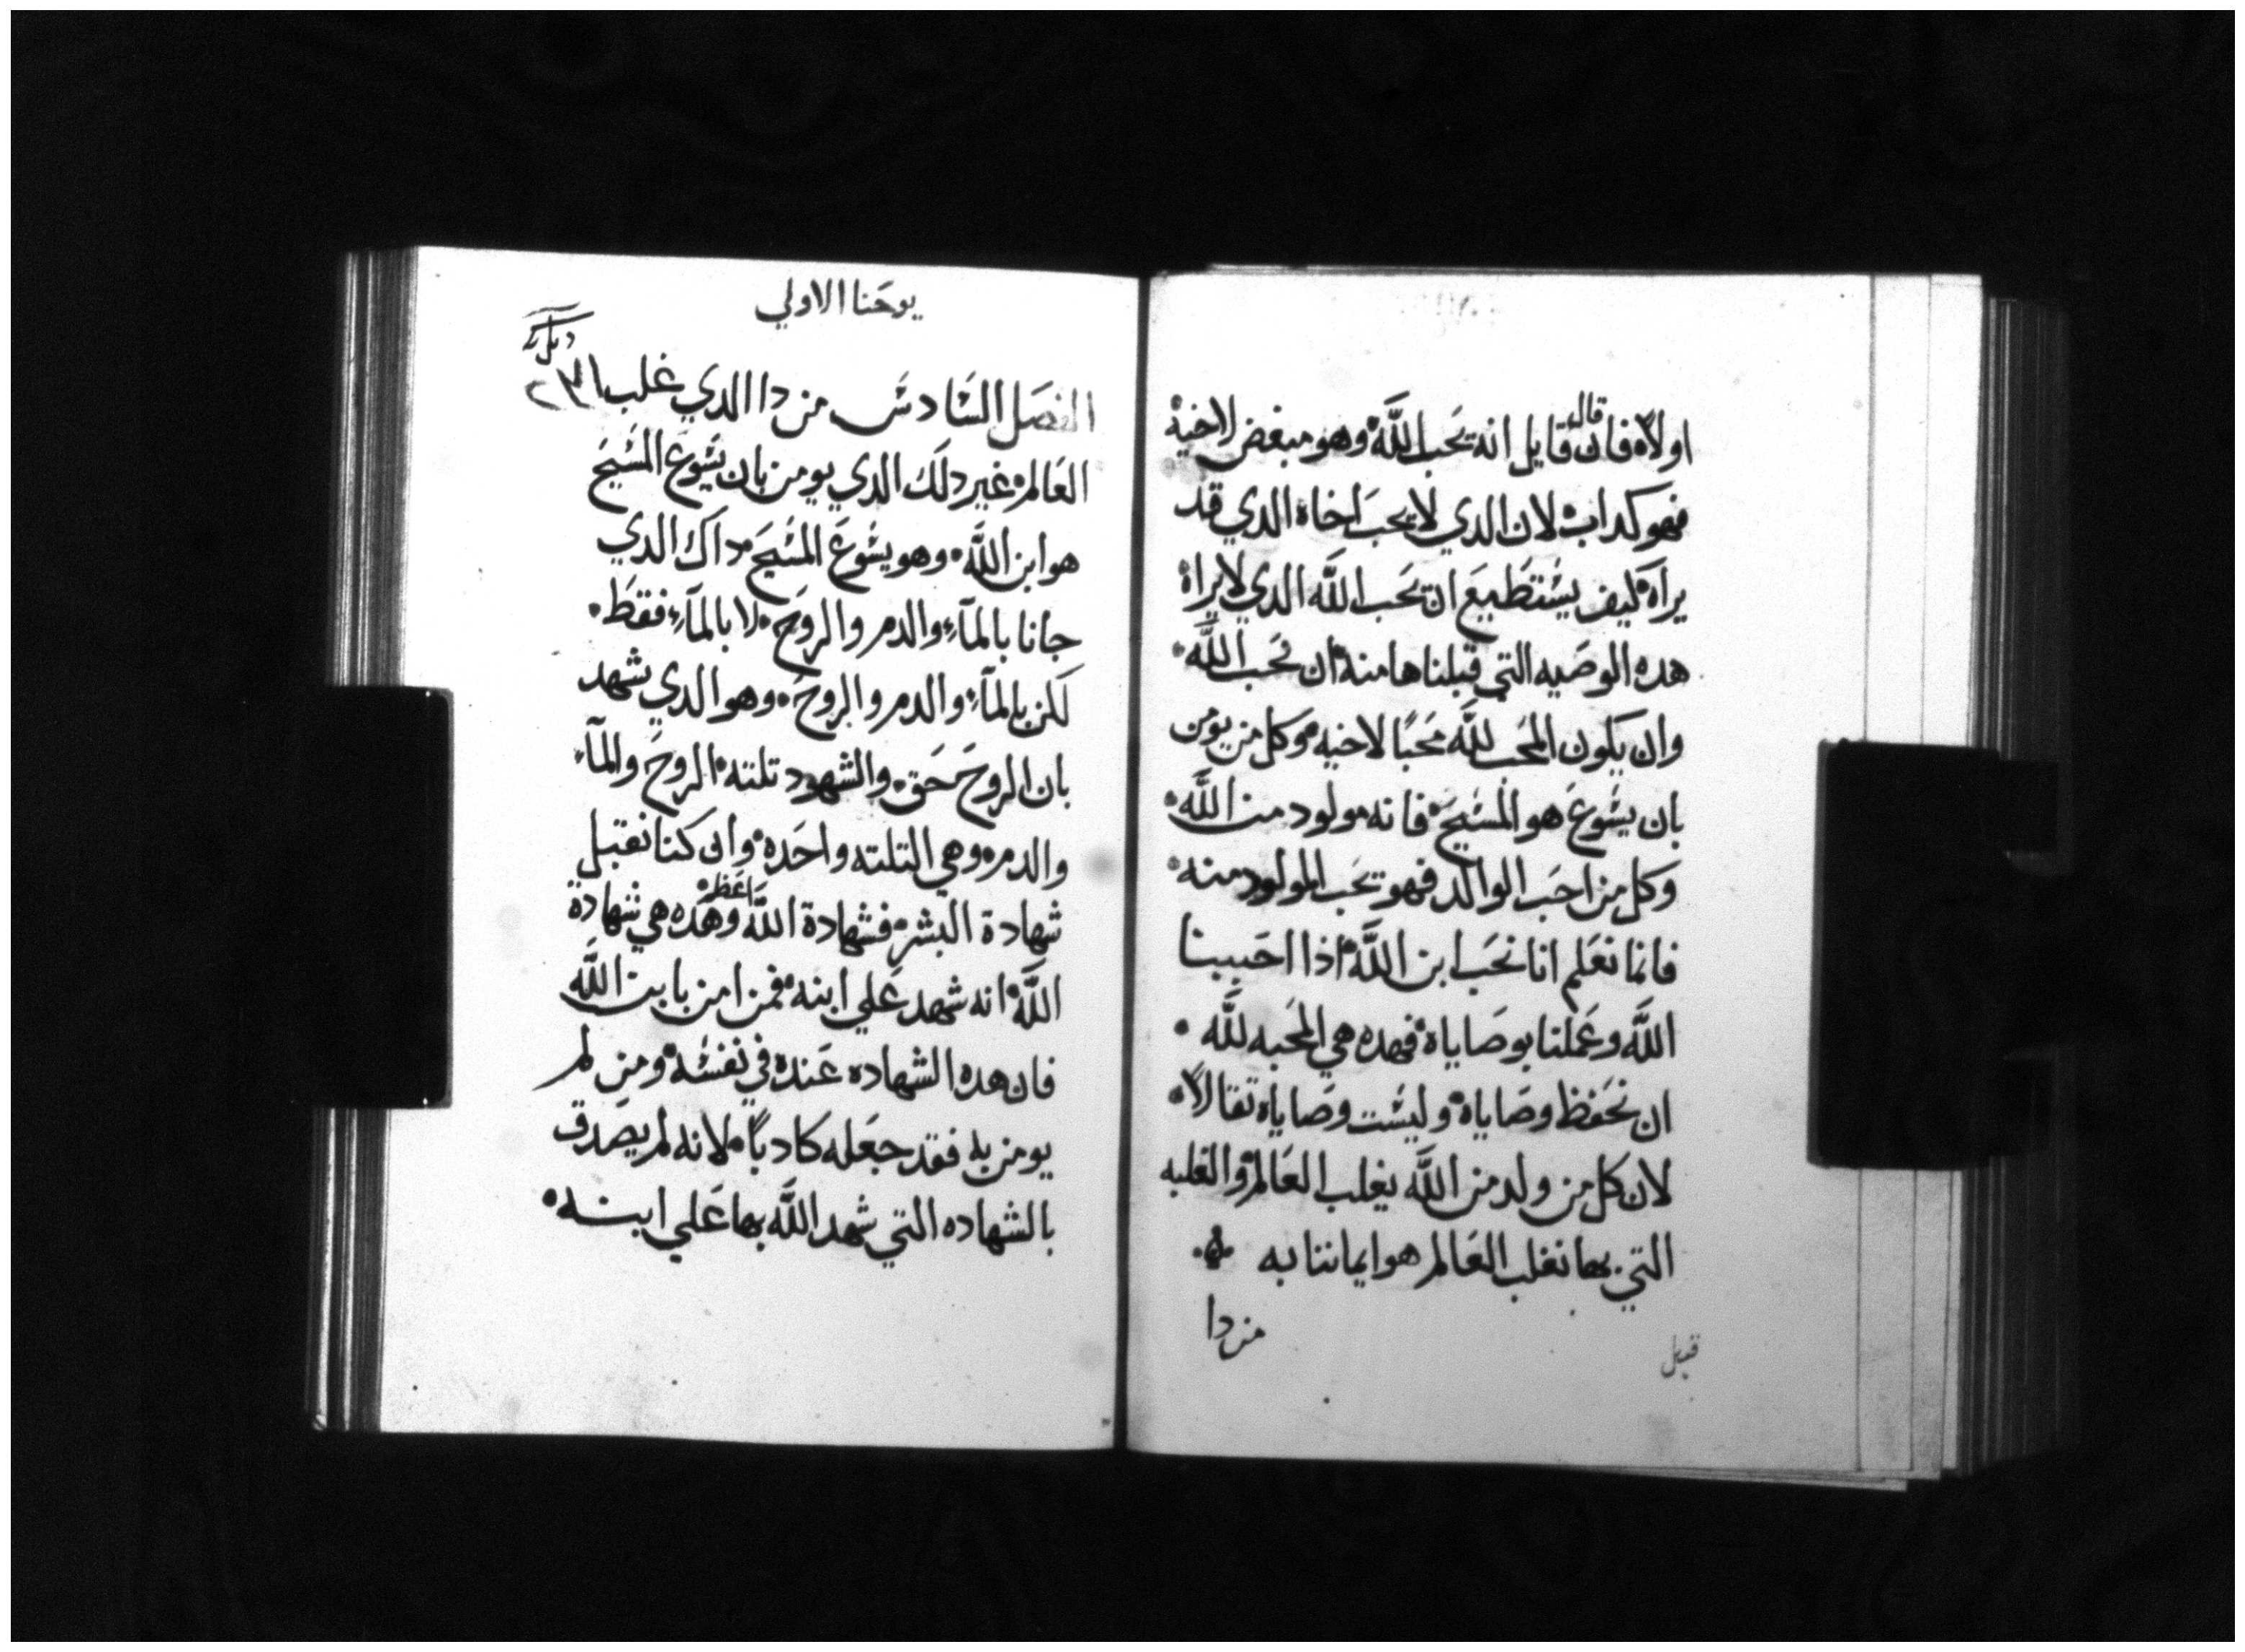 اولاً. فان قال قايل انه يحب الله. وهو مبغض لاخيه.
فهو كداب. لان الدي لا يحب اخاه الدي قد
يراه. كيف يستطيع ان يحب الله الدي لا يراه.
هده الوصيه التي قبلناها منه. ان نحب الله.
وان يكون المحب لله محبًا لاخيه. وكل من يومن
بان يسوع هو المسيح. فانه مولود من الله.
وكل من احب الوالد فهو يحب المولود منه.
فانما نعلم انا نحب ابن الله. اذا احببنا
الله وعملنا بوصاياه. فهده هي المحبه لله.
ان نحفظ وصاياه. وليست وصاياه تقالاً.
لان كل من ولد من الله يغلب العالم. والغلبه
التي بها نغلب العالم هو ايماننا به
من دا
يوحنا الاولي
الفصل السادس من دا الدي غلب
العالم. غير دلك الدي يومن بان يسوع المسيح
هو ابن الله. وهو يسوع المسيح. داك الدي
جانا بالمآء والدم والروح. لا بالمآء فقط.
لكن بالمآء والدم والروح. وهو الدي يشهد
بان الروح حق. والشهود تلته. الروح والمآء
والدم. وهي التلته واحده. وان كنا نقبل
شهادة البشر. فشهادة الله اعظم. وهده هي شهادة
الله. انه شهد علي ابنه. فمن امن بابن الله
فان هده الشهاده عنده في نفسه. ومن لم
يومن به فقد جعله كادباً. لانه لم يصدق
بالشهاده التي شهد الله بها علي ابنه.